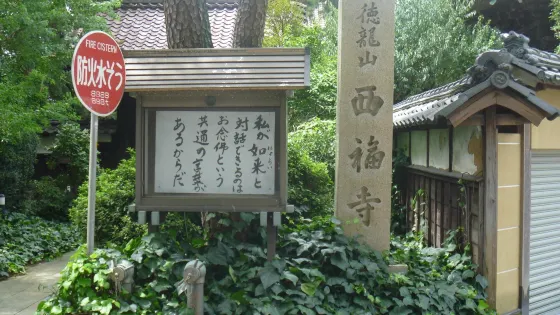 FIRE CISTERN
防火水そう
私が如来と
にょらい
対話できるのは
お念佛という
共通の言葉が
あるからだ
徳龍山
西福寺